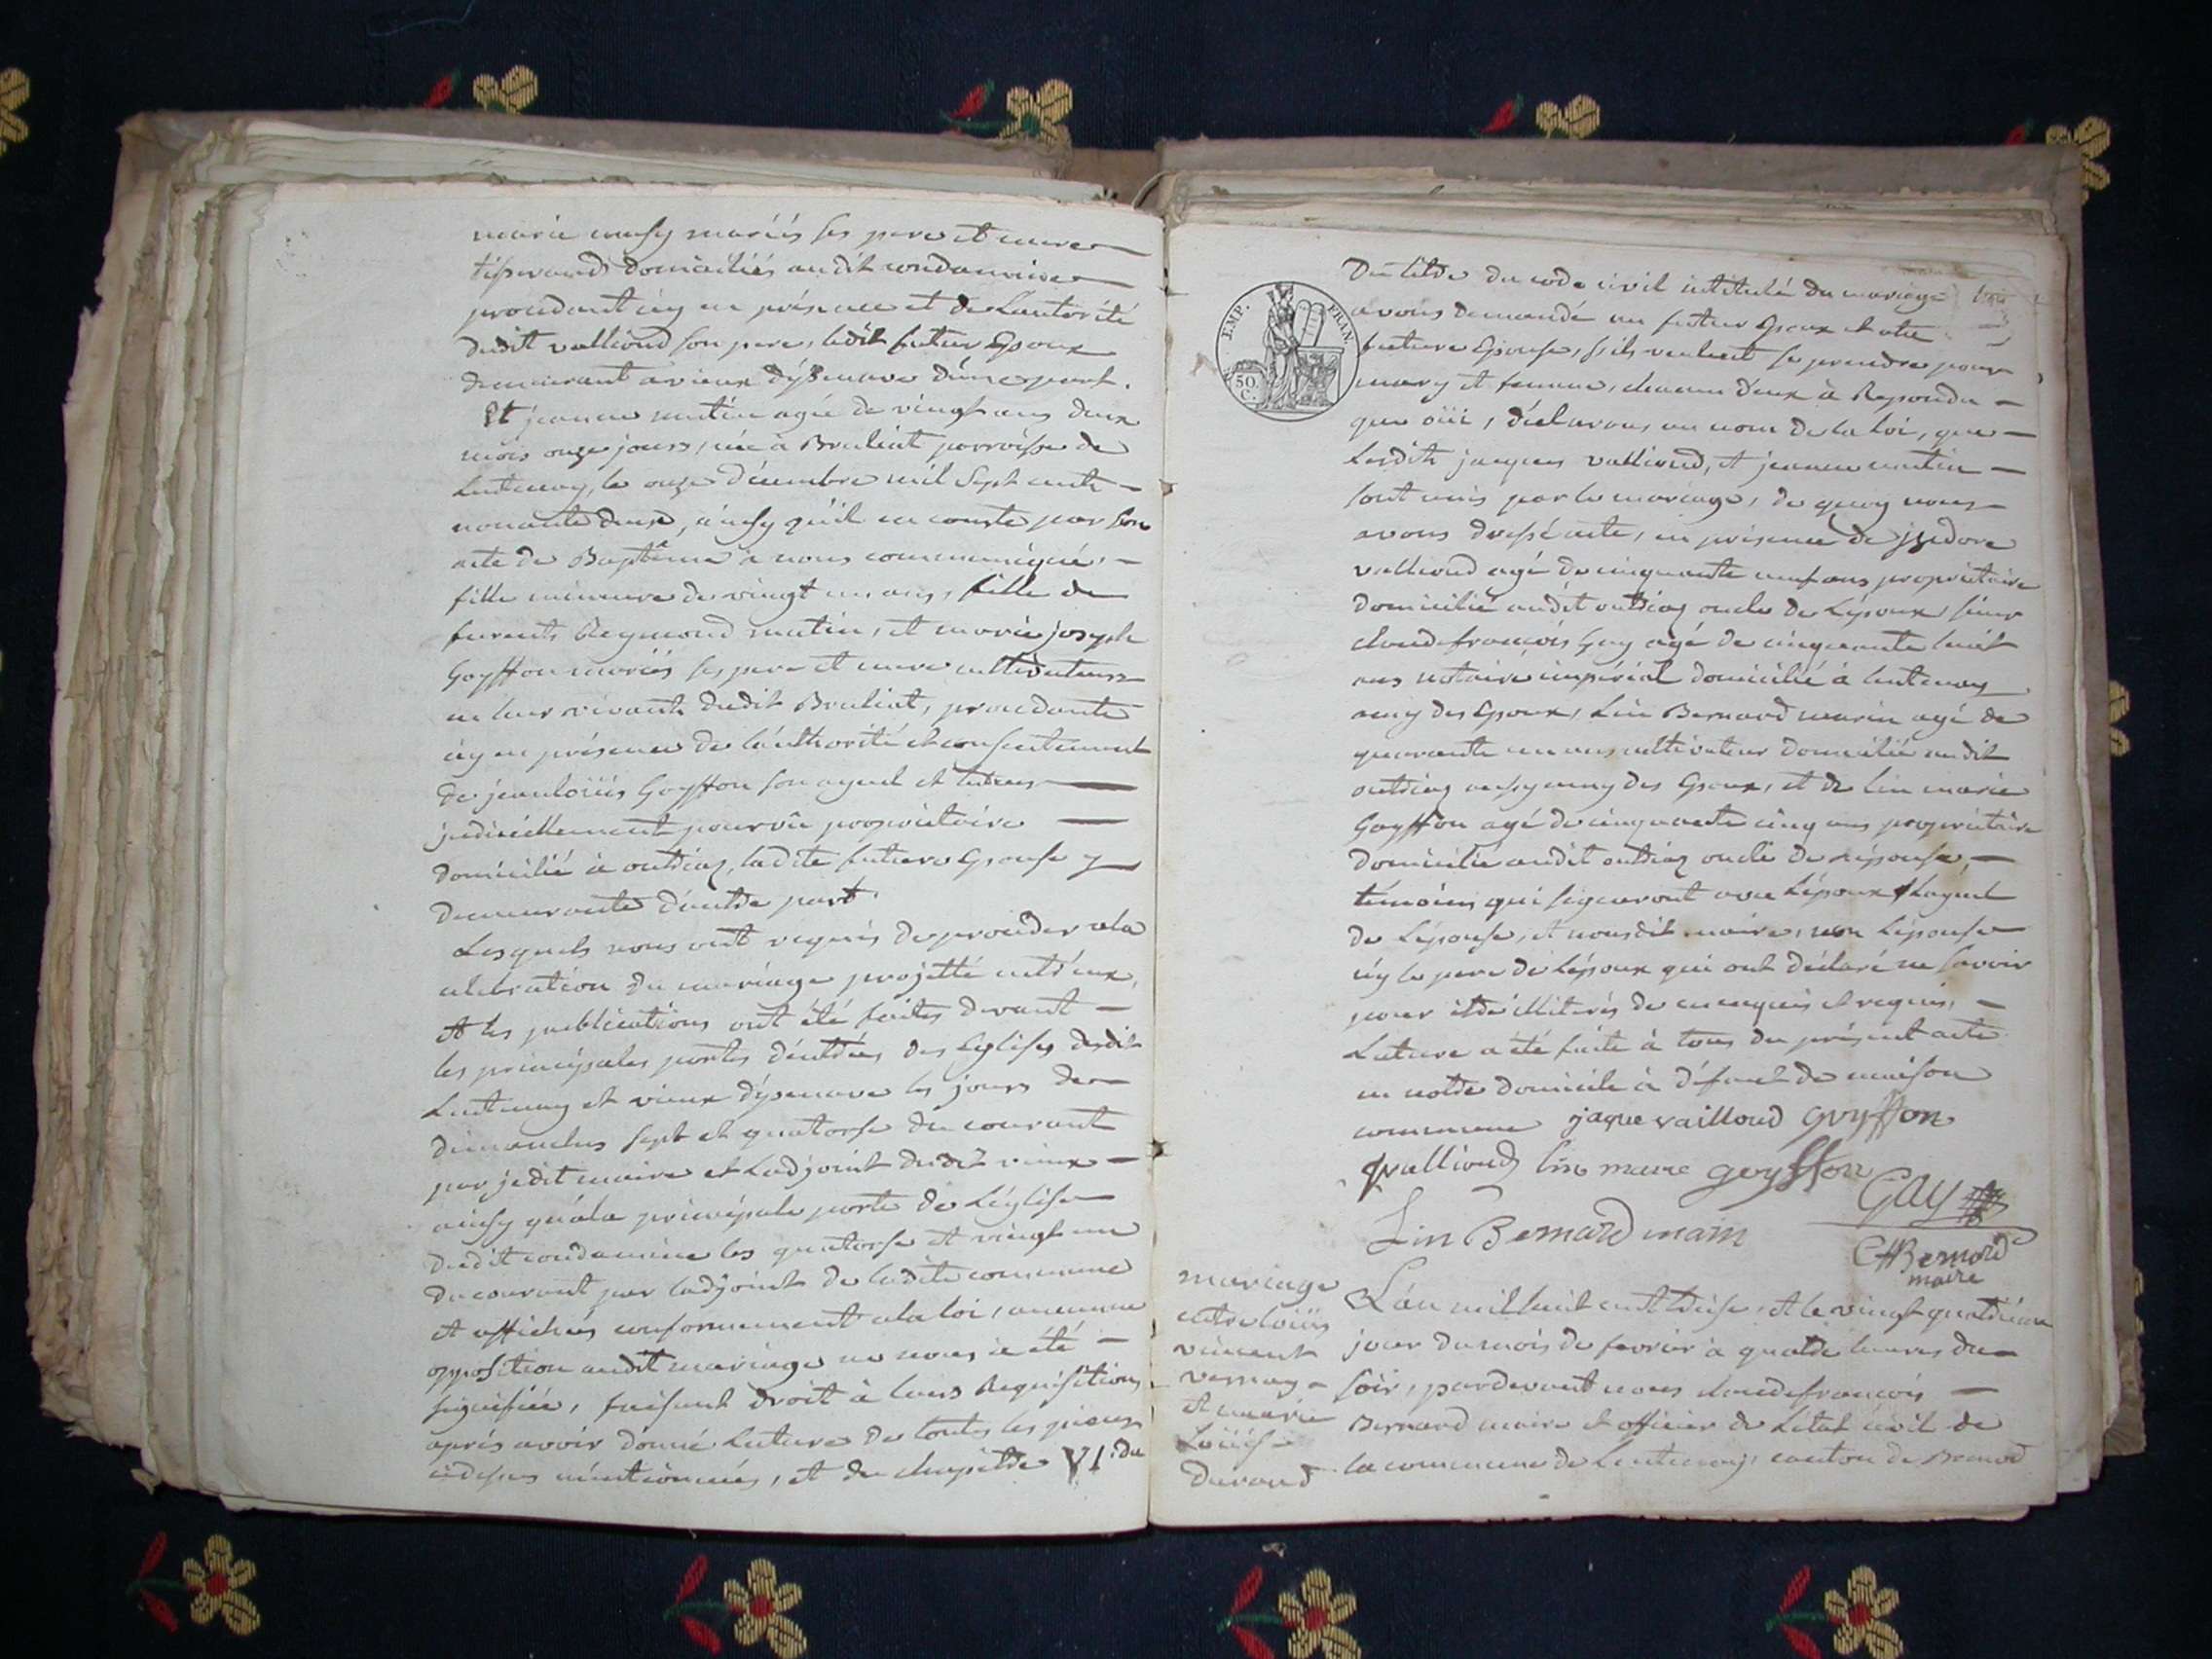 marie mussy mariés ses pere et mere
tisserands domiciliés audit condamine
procedant icy en présence et de Lautorité
dudit vallioud son pere, ledit futur Epoux
demeurant a vieux d'ysenave d'une part.
Et jeanne mutin agée de vingt ans deux
mois onze jours, née à Braliat parroisse de
Lentenay, le onze décembre mil Sept cents
nonante deux, ainsy qu'il en conste par son
acte de Baptême à nous communiqué,
fille mineure de vingt un ans, fille de
furents Reymond mutin, et marie joseph
Goyffon mariés ses pere et mere cultivateurs
en leur vivants dudit Braliat, procedante
icy en présence de l'authorité et consentement
de jeanloüis Goyffon son ayeul et tuteur
judiciellement pourvû propriétaire
domicilié à outriaz, ladite future Epouse y
demeurante d'autre part.
Lesquels nous ont requis de proceder a la
celebration du mariage projetté entr'eux,
et les publications ont été faites devant
les principales portes d'entrées des Eglises dudit
Lentenay et vieux d'ysenave les jours de
dimanches sept et quatorse du courant
par jedit maire et Ladjoint dudit vieux
ainsy qu'a la principale porte de Léglise
dudit condamine les quatorse et vingt un
du courant par ladjoint de ladite commune
et affichés conformement a la loi, aucune
opposition audit mariage ne nous a été
signifiée, faisant droit à leurs Requisitions
aprés avoir donné Lecture de toutes les pieces
cidessus mentionnées, et du chapitre VI. du
EMP. FRAN.
50. C.
Du titre du code civil intitulé du mariage
avons demandé au futur Epoux et a la
future Epouse, s'ils veulent se prendre pour
mary et femme, chacun d'eux à Repondu
que oüi, déclarons au nom de la loi, que
Lesdits jacques vallioud, et jeanne mutin
sont unis par le mariage, de quoy nous
avons dressé acte, en présence de jsidore
vallioud agé de cinquante neuf ans propriétaire
domicilié audit outriaz oncle de Lépoux, sieur
claudefrançois Gay agé de cinquante huit
ans notaire impérial domicilié à lentenay
amy des Epoux, Lin Bernard marin agé de
quarante un ans cultivateur domicilié audit
outriaz aussy amy des Epoux, et de lin marie
Goyffon agé de cinquante cinq ans propriétaire
domicilié audit outriaz oncle de Lépouse,
témoins qui signeront avec Lépoux et Layeul
de Lépouse, et nousdit maire, non Lépouse
icy le pere de Lépoux qui ont déclaré ne savoir
pour être illiterés de ce enquis et requis,
Lecture a été faite à tous du présent acte
en notre domicile à défaut de maison
commune jaque vailloud Goyffon
vallioud lin marie goyffon
Gay
Lin Bernard marin
Bernard
maire
mariage
entre loüis
vincent
vernay
et marie
Loüise
durand
L'an mil huit cent treise, et le vingt quatrième
jour du mois de fevrier à quatre heures du
soir, pardevant nous claudefrancois
Bernard maire et officier de Letat civil de
la commune de Lentenay, canton de Brenod